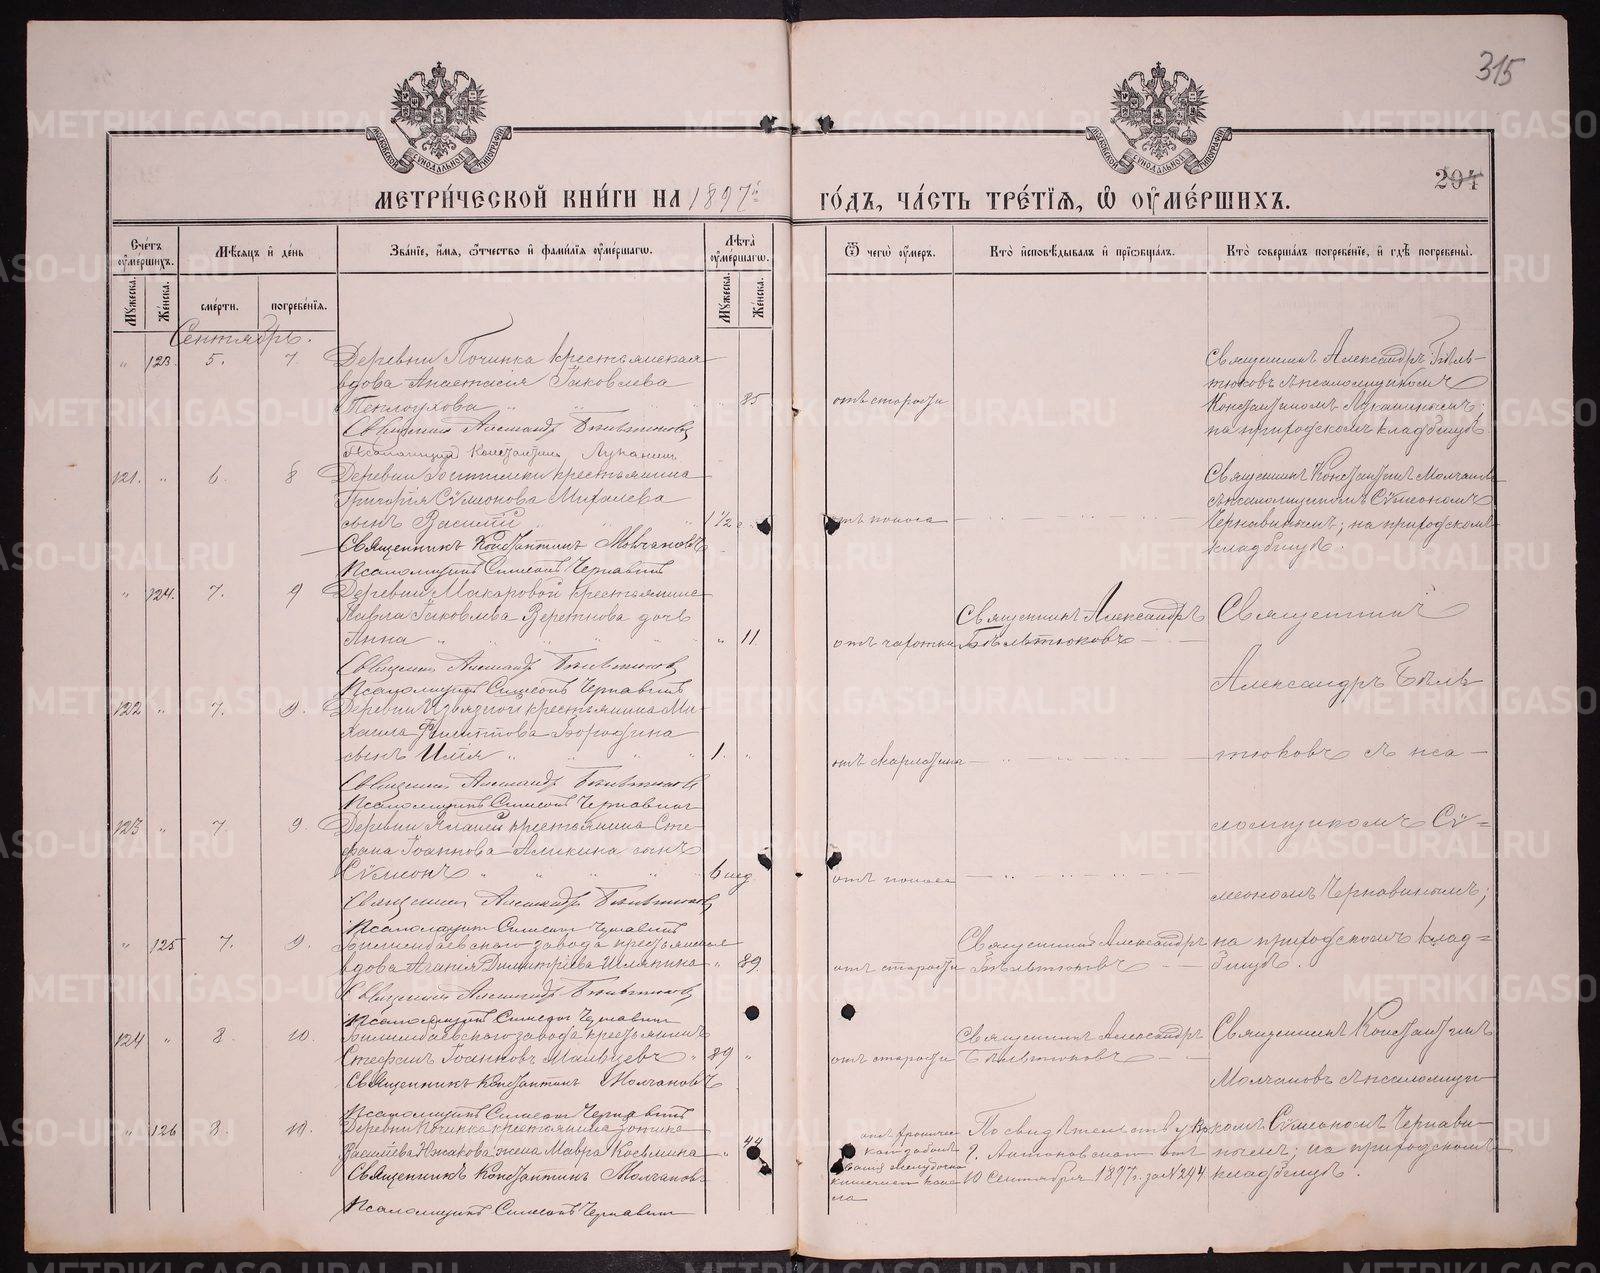 315
204
МЕТРИ́ЧЕСКОЙ КНИ́ГИ НА 1897й
ГО́ДЪ, ЧА́СТЬ ТРЕ́ТІѦ, Ѡ ОУ҆МЕ́РШИХЪ.
Счетъ оумершихъ.
Мѣсяцъ и день
Званіе, имя, отчество и фамилія оумершагѡ.
Лѣта оумершагѡ.
Ѿ чегѡ оумеръ.
Кто исповѣдывалъ и пріобщалъ.
Кто совершалъ погребеніе, и гдѣ погребены.
Мужеска.
Женска.
смерти.
погребенія.
Мужеска.
Женска.
Сентябрь.
" 123. 5. 7.
Деревни Починка крестьянская
вдова Анастасія Іаковлева
Теплоухова " " 85
Священникъ Александръ Бѣльтюковъ
Псаломщикъ Константинъ Лукашинъ
отъ старости
Священникъ Александръ Бѣль-
тюковъ съ псаломщикомъ
Константиномъ Лукашинымъ;
на приходскомъ кладбищѣ
121. " 6. 8
Деревни крестьянина
Григорія Сѵмеонова Михалева
сынъ Василій 1½ г.
Священникъ Константинъ Молчановъ
Псаломщикъ Симеонъ Чернавинъ
отъ поноса
Священникъ Константинъ Молчановъ
съ псаломщикомъ Сѵмеономъ
Чернавинымъ; на приходскомъ
кладбищѣ.
" 124. 7. 9
Деревни Макаровой крестьянина
Павла Іаковлева Веретнова дочь
Анна " " 11.
Священникъ Александръ Бѣльтюковъ
Псаломщикъ Симеонъ Чернавинъ
отъ чахотки
Священникъ Александръ
Бѣльтюковъ
Священникъ
Александръ Бѣль
тюковъ съ пса-
ломщикомъ Сѵ=
меономъ Чернавинымъ;
на приходскомъ клад=
бищѣ.
122 " 7. 9.
Деревни крестьянина Ми-
хаила Филиппова Бородина
сынъ Илія " " 1. "
Священникъ Александръ Бѣльтюковъ
Псаломщикъ Симеонъ Чернавинъ
отъ скарлатины
123 " 7 9.
Деревни крестьянина Сте-
фана Іоаннова Аликина сынъ
Сѵмеонъ " " 6 нед.
Священникъ Александръ Бѣльтюковъ
Псаломщикъ Симеонъ Чернавинъ
отъ поноса
" 125 7. 9.
Билимбаевскаго завода крестьянская
вдова Агапія Димитріева Шляпина " 89.
Священникъ Александръ Бѣльтюковъ
Псаломщикъ Симеонъ Чернавинъ
отъ старости
Священникъ Александръ
Бѣльтюковъ
124 " 8. 10.
Билимбаевскаго завода крестьянинъ
Стефанъ Іоанновъ Мальцевъ " 89 "
Священникъ Константинъ Молчановъ
Псаломщикъ Симеонъ Чернавинъ
отъ старости
Священникъ Александръ
Бѣльтюковъ
Священникъ Константинъ
Молчановъ съ псаломщи-
комъ Сѵмеономъ Чернави-
нымъ; на приходскомъ
кладбищѣ.
" 126 8. 10.
Деревни Починка крестьянина
Василіева Южакова жена Мавра Косьмина " 44
Священникъ Константинъ Молчановъ
Псаломщикъ Симеонъ Чернавинъ
По свидѣтельству
отъ
10 Сентября 1897 г. за № 294
METRIKI.GASO-URAL.RU